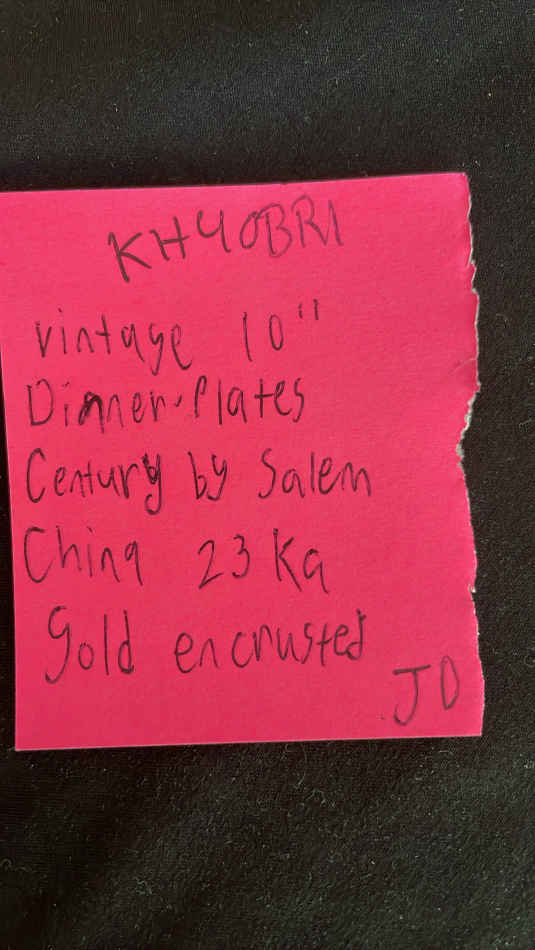 KH40BR1
vintage 10"
Dinner Plates
Century by Salem
China 23 Ka
gold encrusted
JD